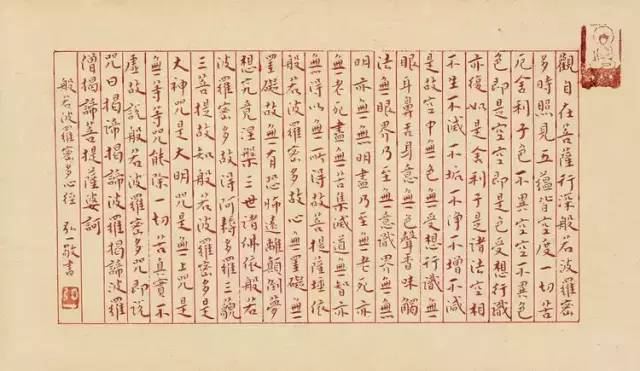 觀自在菩薩行深般若波羅蜜
多時照見五蘊皆空度一切苦
厄舍利子色不異空空不異色
色即是空空即是色受想行識
亦復如是舍利子是諸法空相
不生不滅不垢不淨不增不減
是故空中無色無受想行識無
眼耳鼻舌身意無色聲香味觸
法無眼界乃至無意識界無無
明亦無無明盡乃至無老死亦
無老死盡無苦集滅道無智亦
無得以無所得故菩提薩埵依
般若波羅蜜多故心無罣礙無
罣礙故無有恐怖遠離顛倒夢
想究竟涅槃三世諸佛依般若
波羅蜜多故得阿耨多羅三藐
三菩提故知般若波羅蜜多是
大神咒是大明咒是無上咒是
無等等咒能除一切苦真實不
虛故說般若波羅蜜多咒即說
咒曰揭諦揭諦波羅揭諦波羅
僧揭諦菩提薩婆訶
般若波羅蜜多心經 弘敬書